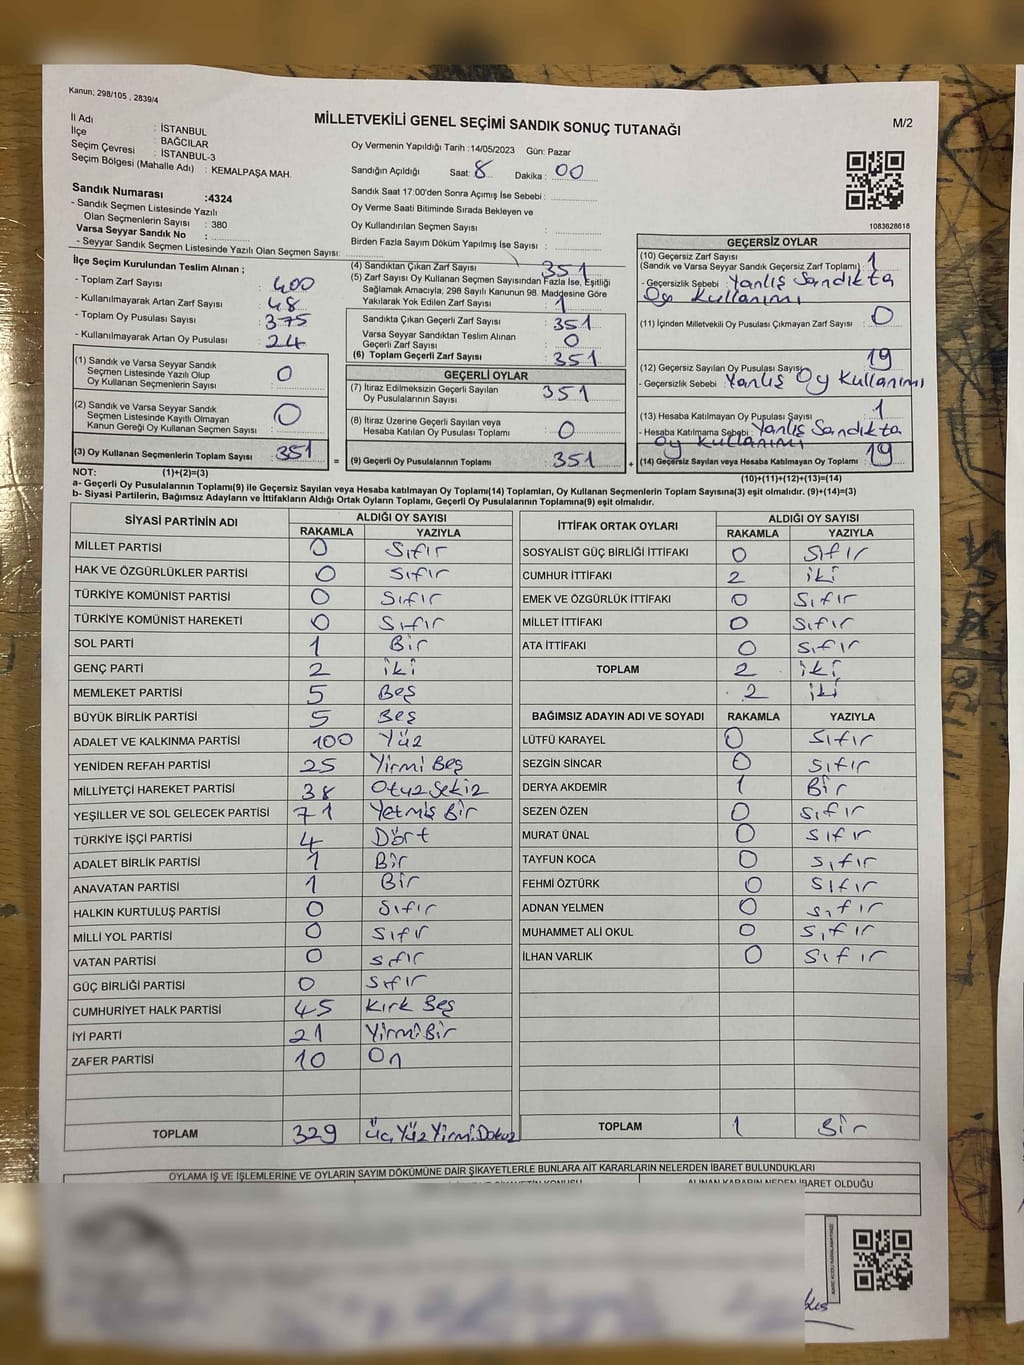 Kanun; 298/105 , 2839/4
MİLLETVEKİLİ GENEL SEÇİMİ SANDIK SONUÇ TUTANAĞI
M/2
İl Adı : İSTANBUL
İlçe : BAĞCILAR
Seçim Çevresi : İSTANBUL-3
Seçim Bölgesi (Mahalle Adı) : KEMALPAŞA MAH.
Sandık Numarası :4324
- Sandık Seçmen Listesinde Yazılı
Olan Seçmenlerin Sayısı : 380
Varsa Seyyar Sandık No :
- Seyyar Sandık Seçmen Listesinde Yazılı Olan Seçmen Sayısı:
Oy Vermenin Yapıldığı Tarih :14/05/2023 Gün: Pazar
Sandığın Açıldığı Saat: 8 Dakika : 00
Sandık Saat 17:00'den Sonra Açımış İse Sebebi :
Oy Verme Saati Bitiminde Sırada Bekleyen ve
Oy Kullandırılan Seçmen Sayısı :
Birden Fazla Sayım Döküm Yapılmış İse Sayısı :
1083628616
İlçe Seçim Kurulundan Teslim Alınan ;
- Toplam Zarf Sayısı : 400
- Kullanılmayarak Artan Zarf Sayısı : 48
- Toplam Oy Pusulası Sayısı : 375
- Kullanılmayarak Artan Oy Pusulası : 24
(1) Sandık ve Varsa Seyyar Sandık
Seçmen Listesinde Yazılı Olup
Oy Kullanan Seçmenlerin Sayısı : 0
(2) Sandık ve Varsa Seyyar Sandık
Seçmen Listesinde Kayıtlı Olmayan
Kanun Gereği Oy Kullanan Seçmen Sayısı : 0
(3) Oy Kullanan Seçmenlerin Toplam Sayısı : 351
(4) Sandıktan Çıkan Zarf Sayısı 351
(5) Zarf Sayısı Oy Kullanan Seçmen Sayısından Fazla İse, Eşitliği
Sağlamak Amacıyla, 298 Sayılı Kanunun 98. Maddesine Göre
Yakılarak Yok Edilen Zarf Sayısı : 1
Sandıkta Çıkan Geçerli Zarf Sayısı : 351
Varsa Seyyar Sandıktan Teslim Alınan
Geçerli Zarf Sayısı : 0
(6) Toplam Geçerli Zarf Sayısı : 351
GEÇERLİ OYLAR
(7) İtiraz Edilmeksizin Geçerli Sayılan
Oy Pusulalarının Sayısı : 351
(8) İtiraz Üzerine Geçerli Sayılan veya
Hesaba Katılan Oy Pusulası Toplamı : 0
= (9) Geçerli Oy Pusulalarının Toplamı : 351 +
GEÇERSİZ OYLAR
(10) Geçersiz Zarf Sayısı
(Sandık ve Varsa Seyyar Sandık Geçersiz Zarf Toplamı) : 1
- Geçersizlik Sebebi : Yanlış Sandıkta
Oy Kullanımı
(11) İçinden Milletvekili Oy Pusulası Çıkmayan Zarf Sayısı : 0
(12) Geçersiz Sayılan Oy Pusulası Sayısı : 19
- Geçersizlik Sebebi : Yanlış Oy Kullanımı
(13) Hesaba Katılmayan Oy Pusulası Sayısı : 1
- Hesaba Katılmama Sebebi : Yanlış Sandıkta
Oy Kullanımı
(14) Geçersiz Sayılan veya Hesaba Katılmayan Oy Toplamı : 19
NOT: (1)+(2)=(3)
(10)+(11)+(12)+(13)=(14)
a- Geçerli Oy Pusulalarının Toplamı(9) ile Geçersiz Sayılan veya Hesaba katılmayan Oy Toplamı(14) Toplamları, Oy Kullanan Seçmenlerin Toplam Sayısına(3) eşit olmalıdır. (9)+(14)=(3)
b- Siyasi Partilerin, Bağımsız Adayların ve İttifakların Aldığı Ortak Oyların Toplamı, Geçerli Oy Pusulalarının Toplamına(9) eşit olmalıdır.
SİYASİ PARTİNİN ADI ALDIĞI OY SAYISI
RAKAMLA YAZIYLA
MİLLET PARTİSİ 0 Sıfır
HAK VE ÖZGÜRLÜKLER PARTİSİ 0 Sıfır
TÜRKİYE KOMÜNİST PARTİSİ 0 Sıfır
TÜRKİYE KOMÜNİST HAREKETİ 0 Sıfır
SOL PARTİ 1 Bir
GENÇ PARTİ 2 iki
MEMLEKET PARTİSİ 5 Beş
BÜYÜK BİRLİK PARTİSİ 5 Beş
ADALET VE KALKINMA PARTİSİ 100 Yüz
YENİDEN REFAH PARTİSİ 25 Yirmi Beş
MİLLİYETÇİ HAREKET PARTİSİ 38 Otuz Sekiz
YEŞİLLER VE SOL GELECEK PARTİSİ 71 Yetmiş Bir
TÜRKİYE İŞÇİ PARTİSİ 4 Dört
ADALET BİRLİK PARTİSİ 1 Bir
ANAVATAN PARTİSİ 1 Bir
HALKIN KURTULUŞ PARTİSİ 0 Sıfır
MİLLİ YOL PARTİSİ 0 Sıfır
VATAN PARTİSİ 0 Sıfır
GÜÇ BİRLİĞİ PARTİSİ 0 Sıfır
CUMHURİYET HALK PARTİSİ 45 Kırk Beş
İYİ PARTİ 21 Yirmi Bir
ZAFER PARTİSİ 10 On
TOPLAM 329 Üç Yüz Yirmi Dokuz
İTTİFAK ORTAK OYLARI ALDIĞI OY SAYISI
RAKAMLA YAZIYLA
SOSYALİST GÜÇ BİRLİĞİ İTTİFAKI 0 Sıfır
CUMHUR İTTİFAKI 2 iki
EMEK VE ÖZGÜRLÜK İTTİFAKI 0 Sıfır
MİLLET İTTİFAKI 0 Sıfır
ATA İTTİFAKI 0 Sıfır
TOPLAM 2 iki
2 iki
BAĞIMSIZ ADAYIN ADI VE SOYADI RAKAMLA YAZIYLA
LÜTFÜ KARAYEL 0 Sıfır
SEZGİN SİNCAR 0 Sıfır
DERYA AKDEMİR 1 Bir
SEZEN ÖZEN 0 Sıfır
MURAT ÜNAL 0 Sıfır
TAYFUN KOCA 0 Sıfır
FEHMİ ÖZTÜRK 0 Sıfır
ADNAN YELMEN 0 Sıfır
MUHAMMET ALİ OKUL 0 Sıfır
İLHAN VARLIK 0 Sıfır
TOPLAM 1 Bir
OYLAMA İŞ VE İŞLEMLERİNE VE OYLARIN SAYIM DÖKÜMÜNE DAİR ŞİKAYETLERLE BUNLARA AİT KARARLARIN NELERDEN İBARET BULUNDUKLARI
ALINAN KARARIN NEDEN İBARET OLDUĞU